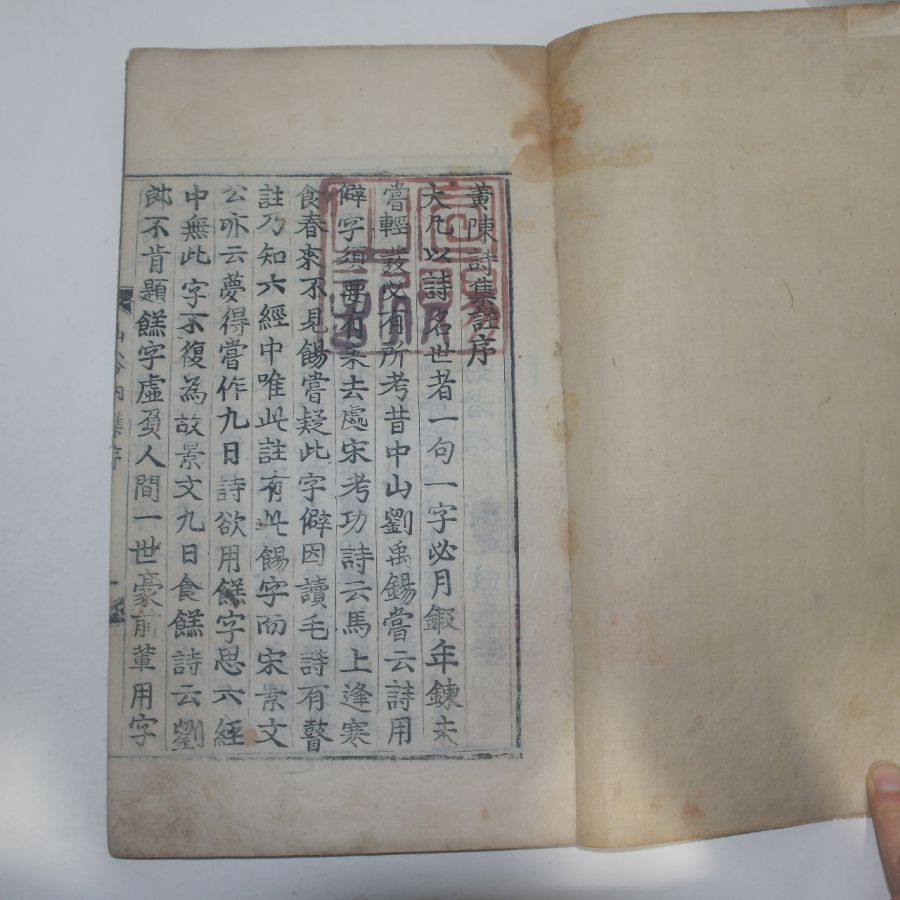 黃陳詩集註序
大凡以詩名世者一句一字必月鍜年鍊未
嘗輕發必有所考昔中山劉禹錫嘗云詩用
僻字須要有來去處宋考功詩云馬上逢寒
食春來不見餳嘗疑此字僻因讀毛詩有瞽
註乃知六經中唯此註有此餳字而宋景文
公亦云夢得嘗作九日詩欲用餻字思六經
中無此字不復為故景文九日食餻詩云劉
郎不肯題餻字虛負人間一世豪前輩用字
山谷內集序